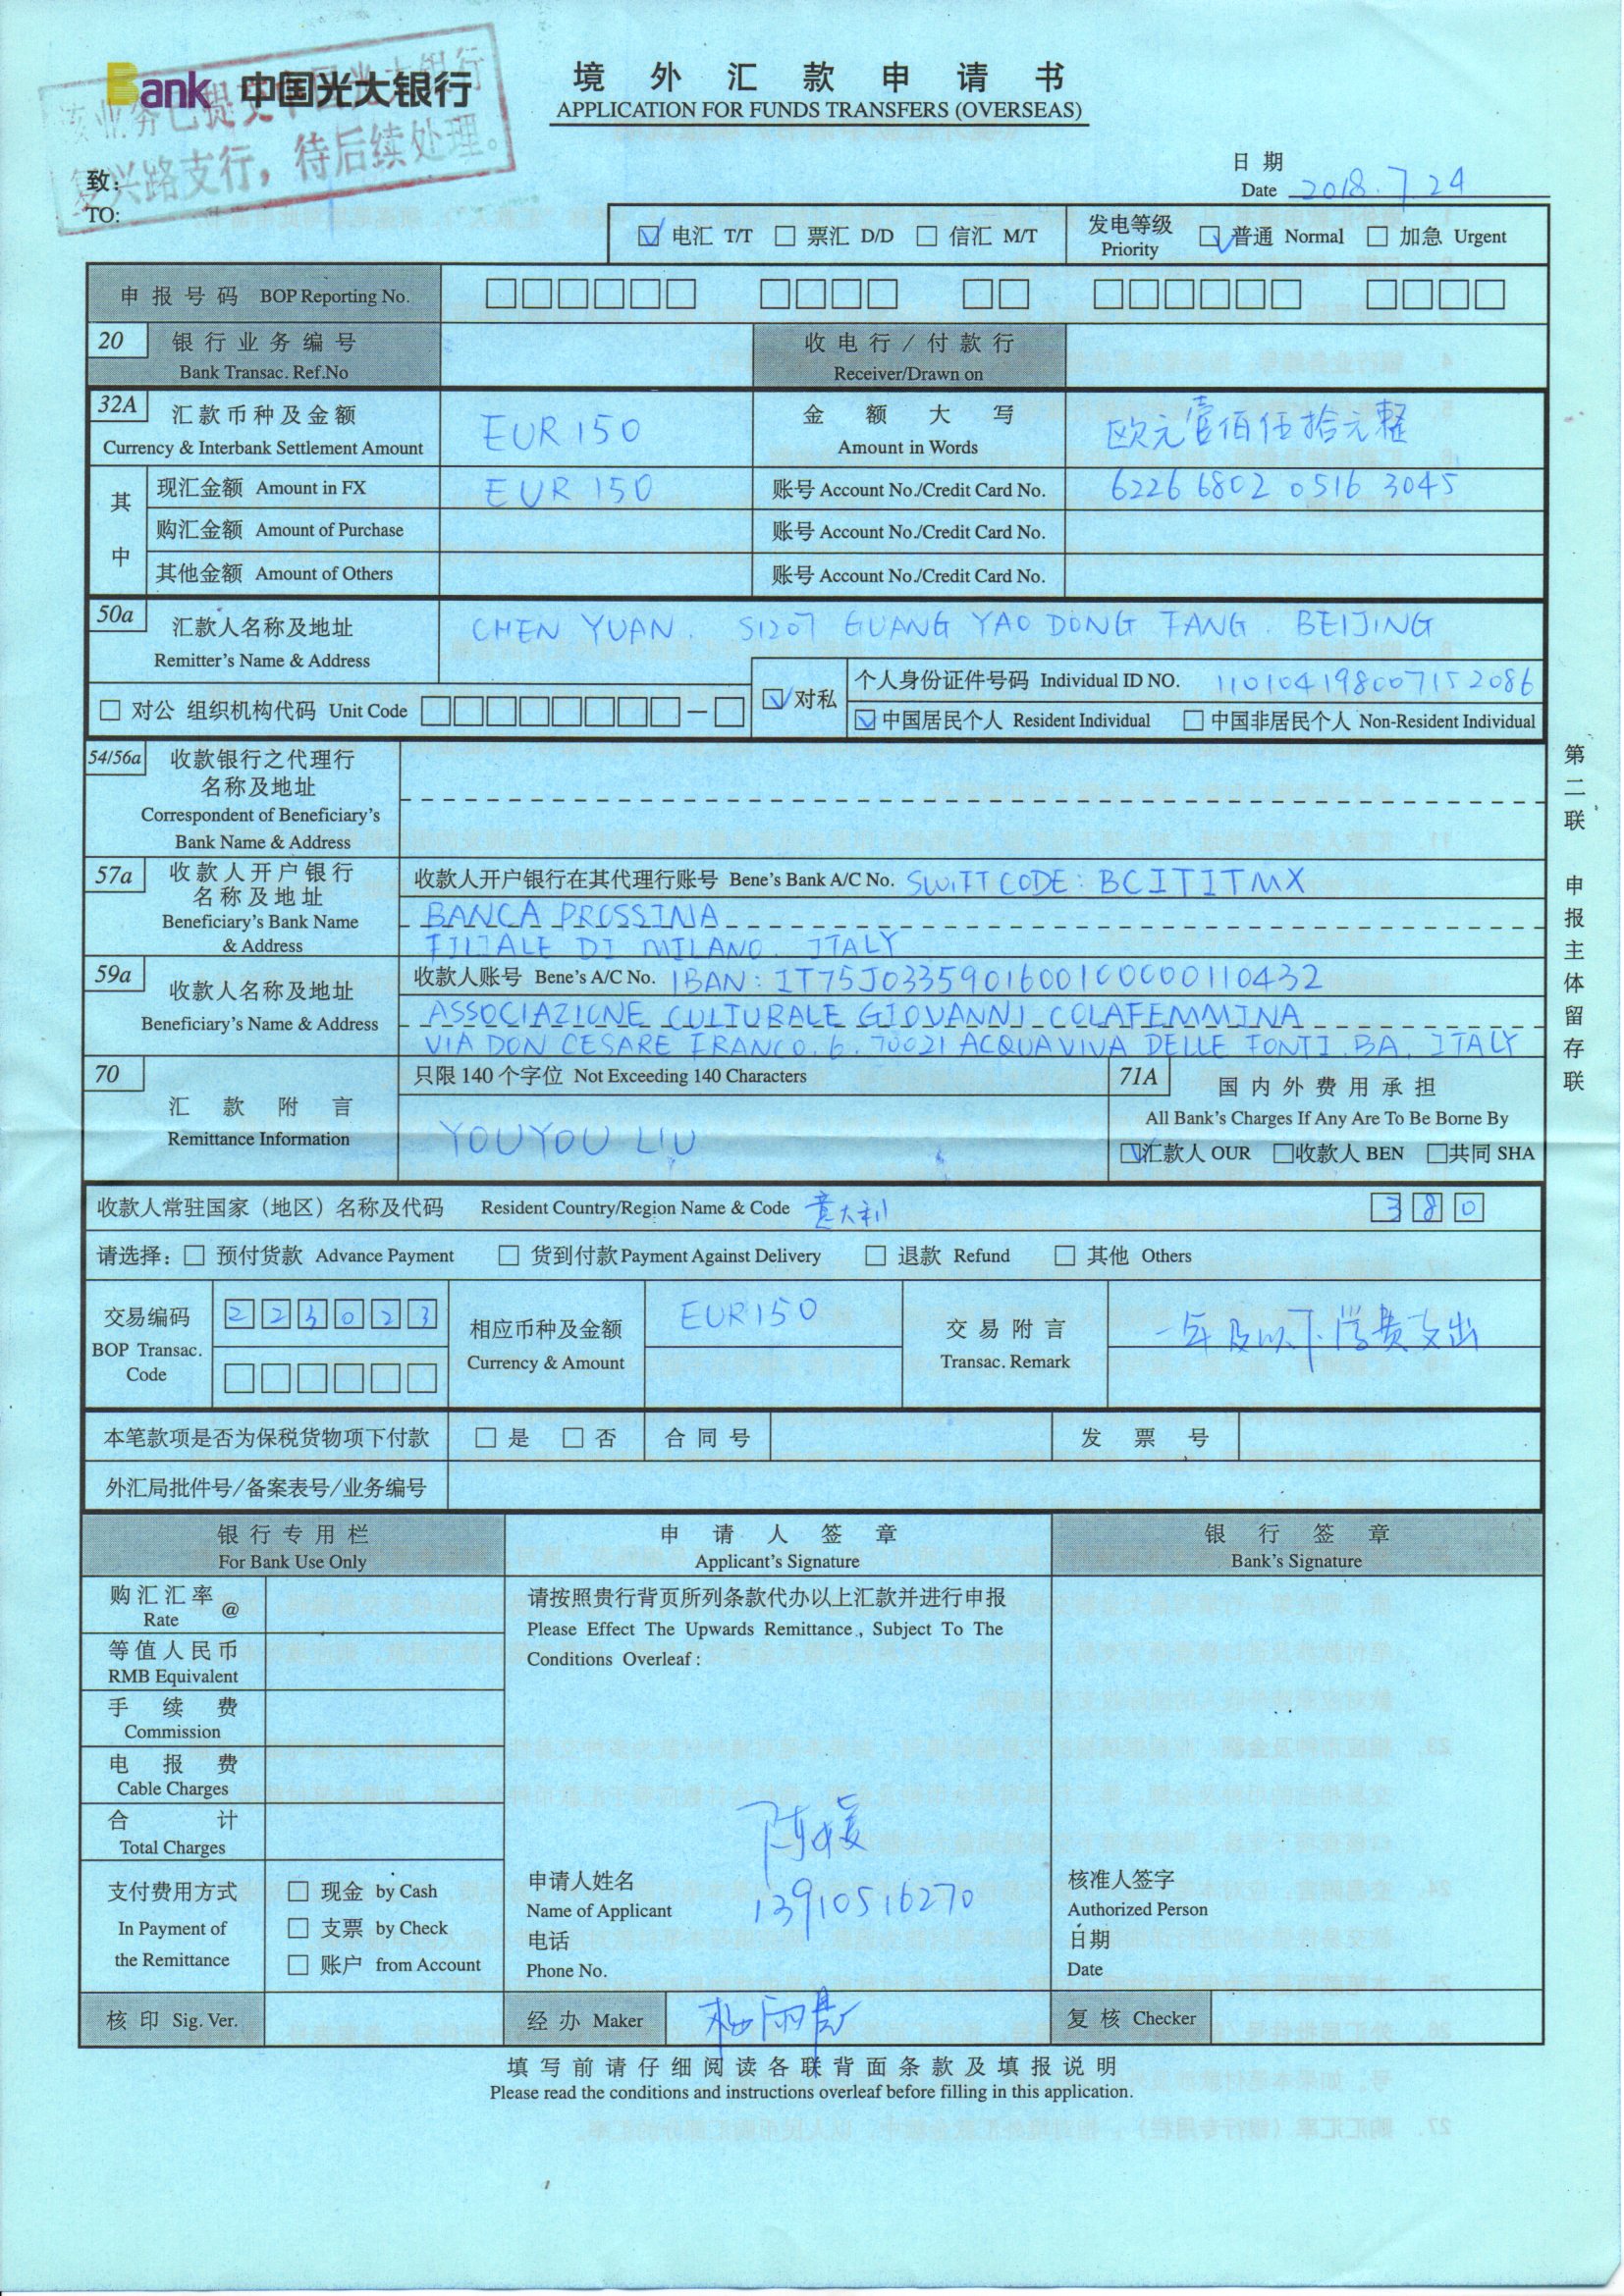 Bank 中国光大银行
该业务已提交中国光大银行
复兴路支行，待后续处理。
境外汇款申请书
APPLICATION FOR FUNDS TRANSFERS (OVERSEAS)
致：
TO:
日期
Date 2018.7.24
电汇 T/T 票汇 D/D 信汇 M/T
发电等级 Priority 普通 Normal 加急 Urgent
申报号码 BOP Reporting No.
20 银行业务编号
Bank Transac. Ref.No
收电行/付款行
Receiver/Drawn on
32A 汇款币种及金额
Currency & Interbank Settlement Amount
EUR 150
金额大写
Amount in Words
欧元壹佰伍拾元整
其中
现汇金额 Amount in FX EUR 150 账号 Account No./Credit Card No. 6226 6802 0516 3045
购汇金额 Amount of Purchase 账号 Account No./Credit Card No.
其他金额 Amount of Others 账号 Account No./Credit Card No.
50a 汇款人名称及地址
Remitter's Name & Address
CHEN YUAN. S1207 GUANG YAO DONG FANG. BEIJING
对公 组织机构代码 Unit Code
对私
个人身份证件号码 Individual ID NO. 110104198007152086
中国居民个人 Resident Individual 中国非居民个人 Non-Resident Individual
54/56a 收款银行之代理行
名称及地址
Correspondent of Beneficiary's
Bank Name & Address
57a 收款人开户银行
名称及地址
Beneficiary's Bank Name
& Address
收款人开户银行在其代理行账号 Bene's Bank A/C No. SWIFT CODE: BCITITMX
BANCA PROSSINA
FILIALE DI MILANO. ITALY
59a 收款人名称及地址
Beneficiary's Name & Address
收款人账号 Bene's A/C No. IBAN: IT75J0335901600100000110432
ASSOCIAZIONE CULTURALE GIOVANNI COLAFEMMINA
VIA DON CESARE FRANCO, 6. 70021 ACQUAVIVA DELLE FONTI. BA. ITALY
70 汇款附言
Remittance Information
只限 140 个字位 Not Exceeding 140 Characters
YOUYOU LIU
71A 国内外费用承担
All Bank's Charges If Any Are To Be Borne By
汇款人 OUR 收款人 BEN 共同 SHA
收款人常驻国家（地区）名称及代码 Resident Country/Region Name & Code 意大利 380
请选择： 预付货款 Advance Payment 货到付款 Payment Against Delivery 退款 Refund 其他 Others
交易编码
BOP Transac.
Code
223023
相应币种及金额
Currency & Amount
EUR150
交易附言
Transac. Remark
一年及以下学费支出
本笔款项是否为保税货物项下付款 是 否 合同号 发票号
外汇局批件号/备案表号/业务编号
银行专用栏
For Bank Use Only
申请人签章
Applicant's Signature
银行签章
Bank's Signature
购汇汇率 @
Rate
等值人民币
RMB Equivalent
手续费
Commission
电报费
Cable Charges
合计
Total Charges
支付费用方式
In Payment of
the Remittance
现金 by Cash
支票 by Check
账户 from Account
请按照贵行背页所列条款代办以上汇款并进行申报
Please Effect The Upwards Remittance, Subject To The
Conditions Overleaf :
陈媛
申请人姓名
Name of Applicant
13910516270
电话
Phone No.
核准人签字
Authorized Person
日期
Date
核印 Sig. Ver.
经办 Maker
复核 Checker
填写前请仔细阅读各联背面条款及填报说明
Please read the conditions and instructions overleaf before filling in this application.
第二联 申报主体留存联